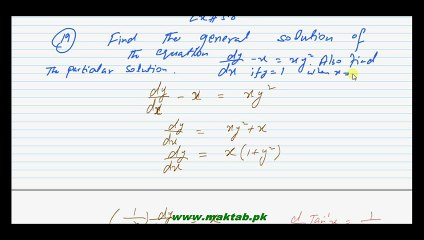 Ex# 3.8
(19) Find the general solution of
the equation dy/dx - x = xy². Also find
the particular solution. if y = 1 when x =
dy/dx - x = xy²
dy/dx = xy² + x
dy/dx = x(1+y²)
www.maktab.pk